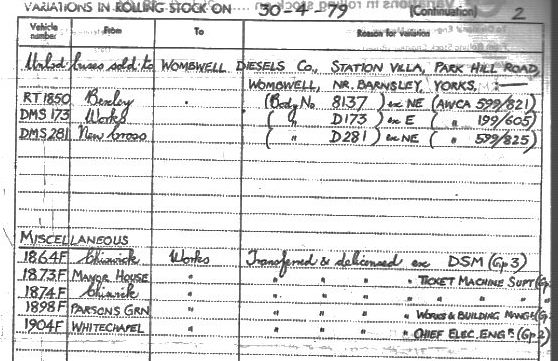 VARIATIONS IN ROLLING STOCK ON 30-4-79 (Continuation) 2
Vehicle number From To Reason for variation
Unlsd buses sold to WOMBWELL DIESELS Co., STATION VILLA, PARK HILL ROAD,
WOMBWELL, NR. BARNSLEY, YORKS. :—
RT 1850 Bexley (Body No. 8137) ex NE (AWCA 599/821)
DMS 173 Works ( " D173 ) ex E ( " 199/605)
DMS 281 New Cross ( " D281 ) ex NE ( " 599/825)
MISCELLANEOUS
1864F Chiswick Works Transferred & delicensed ex DSM (Gp 3)
1873F MANOR HOUSE " " " " " TICKET MACHINE SUPT (Gp
1874F Chiswick " " " " " " " "
1898F PARSONS GRN " " " " " WORKS & BUILDING MANGR (Gp
1904F WHITECHAPEL " " " " " CHIEF ELEC. ENGR (Gp 2)